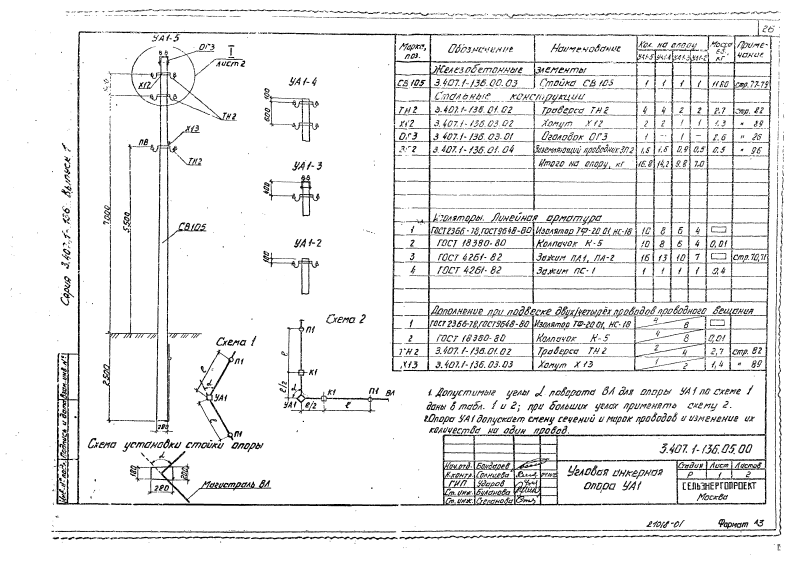 26
Серия 3.407.1-136 Выпуск 1
УА1-5
ОГ3
I
лист 2
Х12
ТН2
ПВ
Х13
ТН2
7.000
5.500
СВ105
2.500
280
УА1-4
400
600
УА1-3
400
УА1-2
400
Схема 1
П1
ℓ
α
УА1
ℓ
П1
Схема 2
П1
ℓ
К1
ℓ/2
УА1
α
К1
П1
ВЛ
ℓ/2
ℓ
Схема установки стойки опоры
α
280
Магистраль ВЛ
Марка, поз. Обозначение Наименование Кол. на опору Масса ед. кг Приме-чание
УА1-5 УА1-4 УА1-3 УА1-2
Железобетонные элементы
СВ105 3.407.1-136.00.03 Стойка СВ105 1 1 1 1 1180 стр. 77-79
Стальные конструкции
ТН2 3.407.1-136.01.02 Траверса ТН2 4 4 2 2 2,7 стр. 82
Х12 3.407.1-136.03.02 Хомут Х12 2 2 1 1 1,3 " 89
ОГ3 3.407.1-136.03.01 Оголовок ОГ3 1 - 1 - 2,6 " 26
ЗП2 3.407.1-136.01.04 Заземляющий проводник ЗП2 1,6 1,6 0,9 0,5 0,5 " 96
Итого на опору, кг 16,8 14,2 9,8 7,0
Изоляторы. Линейная арматура
1 ГОСТ2366-78, ГОСТ9648-80 Изолятор ТФ-20.01, НС-18 10 8 6 4
2 ГОСТ 18380-80 Колпачок К-5 10 8 6 4 0,01
3 ГОСТ 4261-82 Зажим ПА1, ПА-2 16 13 10 7 стр. 70,71
4 ГОСТ 4261-82 Зажим ПС-1 1 1 1 1 0,4
Дополнение при подвеске двух/четырёх проводов проводного вещания
1 ГОСТ2366-78, ГОСТ9648-80 Изолятор ТФ-20.01, НС-18 4 8
2 ГОСТ 18380-80 Колпачок К-5 4 8 0,01
ТН2 3.407.1-136.01.02 Траверса ТН2 2 4 2,7 стр. 82
Х13 3.407.1-136.03.03 Хомут Х13 1 2 1,4 " 89
1. Допустимые углы α поворота ВЛ для опоры УА1 по схеме 1
даны в табл. 1 и 2; при больших углах применять схему 2.
2. Опора УА1 допускает смену сечений и марок проводов и изменение их
количества на один провод.
3.407.1-136.05.00
Нач.отд. Бондарев
Н.контр. Солнцева
ГИП Ударов
Ст. инж. Буланова
Ст. инж. Степанова
Угловая анкерная
опора УА1
Стадия Лист Листов
Р 1 2
СЕЛЬЭНЕРГОПРОЕКТ
Москва
Инв. № подл. Подпись и дата Взам. инв. №
21018-01
Формат А3